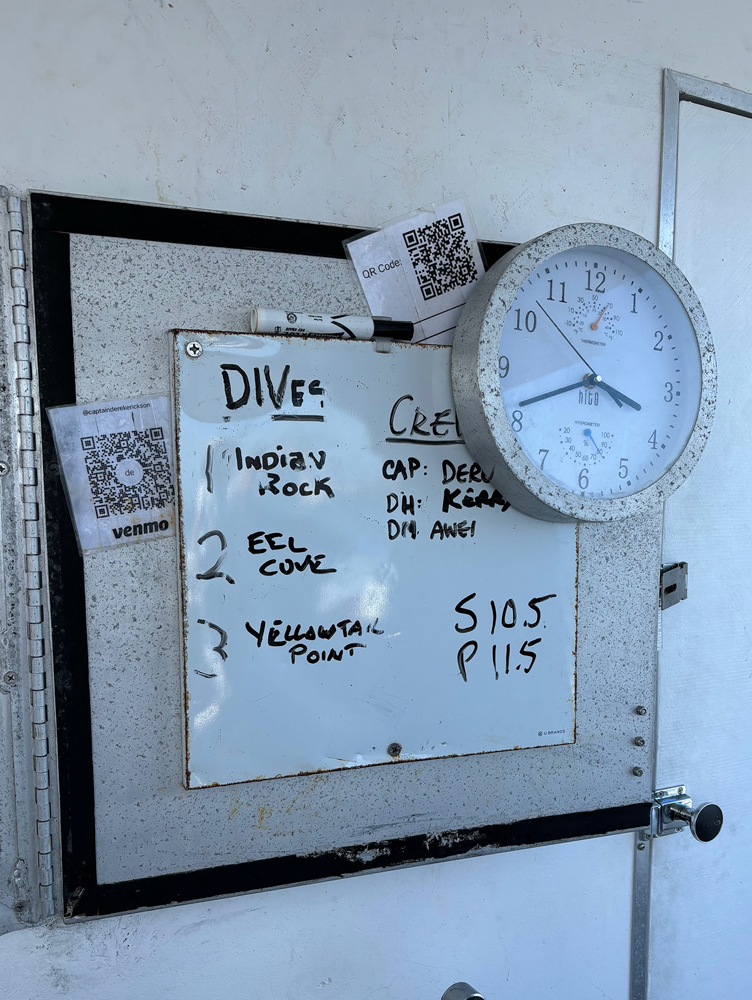 QR Code:
@captainderekerickson
de
venmo
DIVES
1 INDIAN
ROCK
2 EEL
COVE
3 YELLOWTAIL
POINT
CAP:
DH:
DH AWEI
S 10.5
P 11.5
U BRANDS
12
1
2
3
4
5
6
7
8
9
10
11
THERMOMETER
hito
HYGROMETER